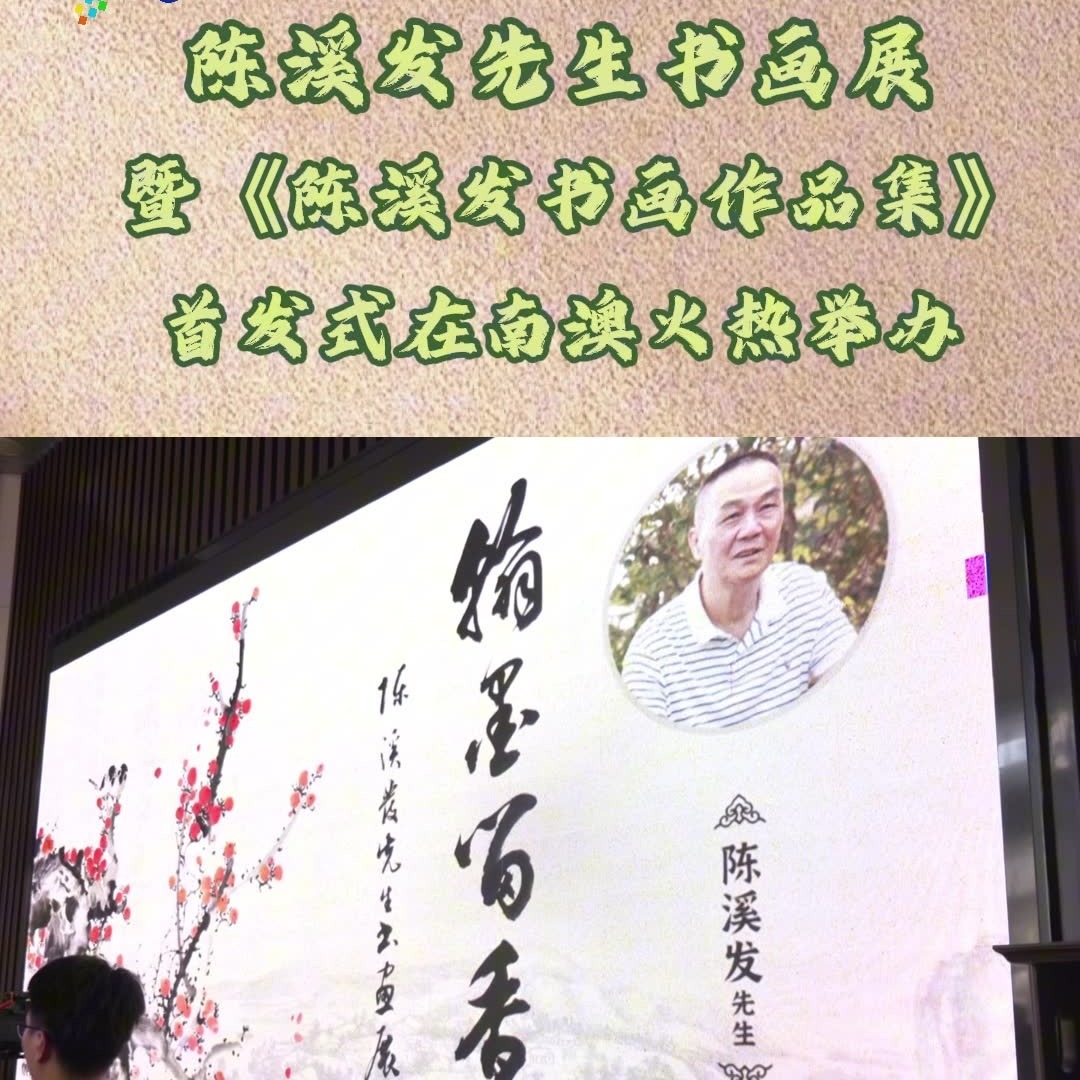 陈溪发先生书画展
暨《陈溪发书画作品集》
首发式在南澳火热举办
翰墨留香
陈溪发先生书画展
陈溪发先生